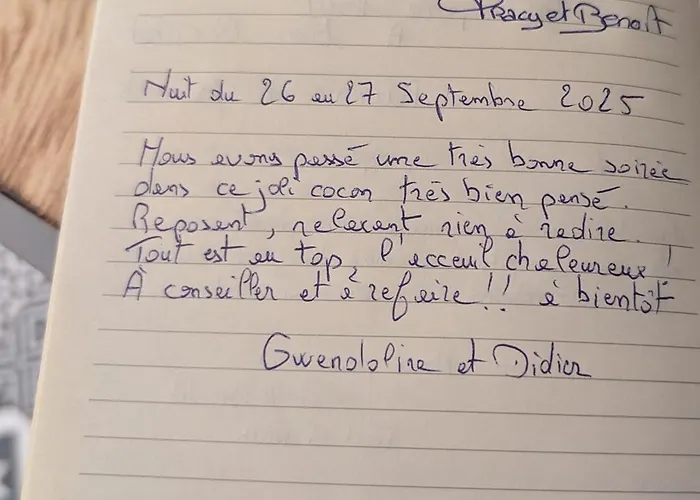 Tracy et Benoît
Nuit du 26 au 27 Septembre 2025
Nous avons passé une très bonne soirée
dans ce joli cocon très bien pensé.
Reposant, relaxant rien à redire.
Tout est au top, l'acceuil chaleureux !
À conseiller et à refaire !! à bientôt
Gwendoline et Didier